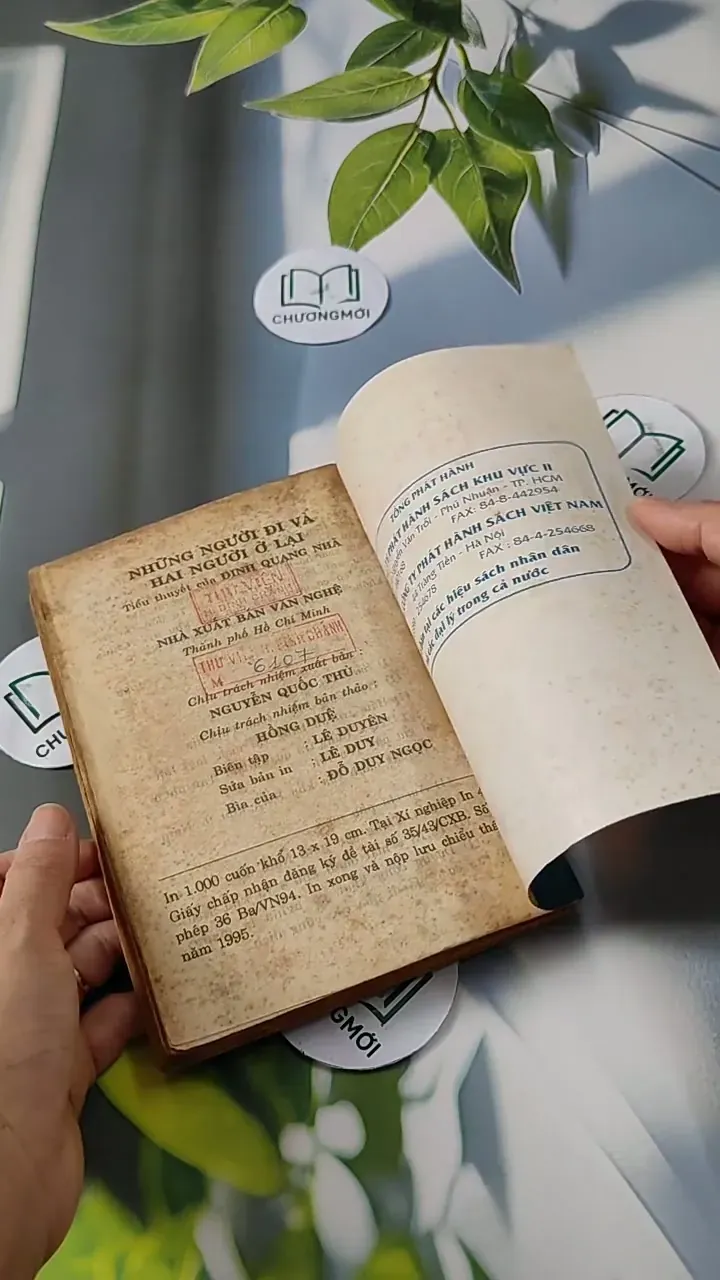 CHƯƠNGMỚI
NHỮNG NGƯỜI ĐI VÀ
HAI NGƯỜI Ở LẠI
Tiểu thuyết của ĐINH QUANG NHÃ
THƯ VIỆN
NHÀ XUẤT BẢN VĂN NGHỆ
Thành phố Hồ Chí Minh
6107
Chịu trách nhiệm xuất bản :
NGUYỄN QUỐC THỤ
Chịu trách nhiệm bản thảo :
HỒNG DUỆ
Biên tập : LÊ DUYÊN
Sửa bản in : LÊ DUY
Bìa của : ĐỖ DUY NGỌC
In 1.000 cuốn khổ 13 x 19 cm. Tại Xí nghiệp In
Giấy chấp nhận đăng ký đề tài số 35/43/CXB. Số
phép 36 Ba/VN94. In xong và nộp lưu chiểu
năm 1995.
TỔNG PHÁT HÀNH
PHÁT HÀNH SÁCH KHU VỰC II
Văn Trỗi - Phú Nhuận - TP. HCM
FAX: 84-8-442954
TY PHÁT HÀNH SÁCH VIỆT NAM
Tràng Tiền - Hà Nội
FAX : 84-4-254668
tại các hiệu sách nhân dân
các đại lý trong cả nước